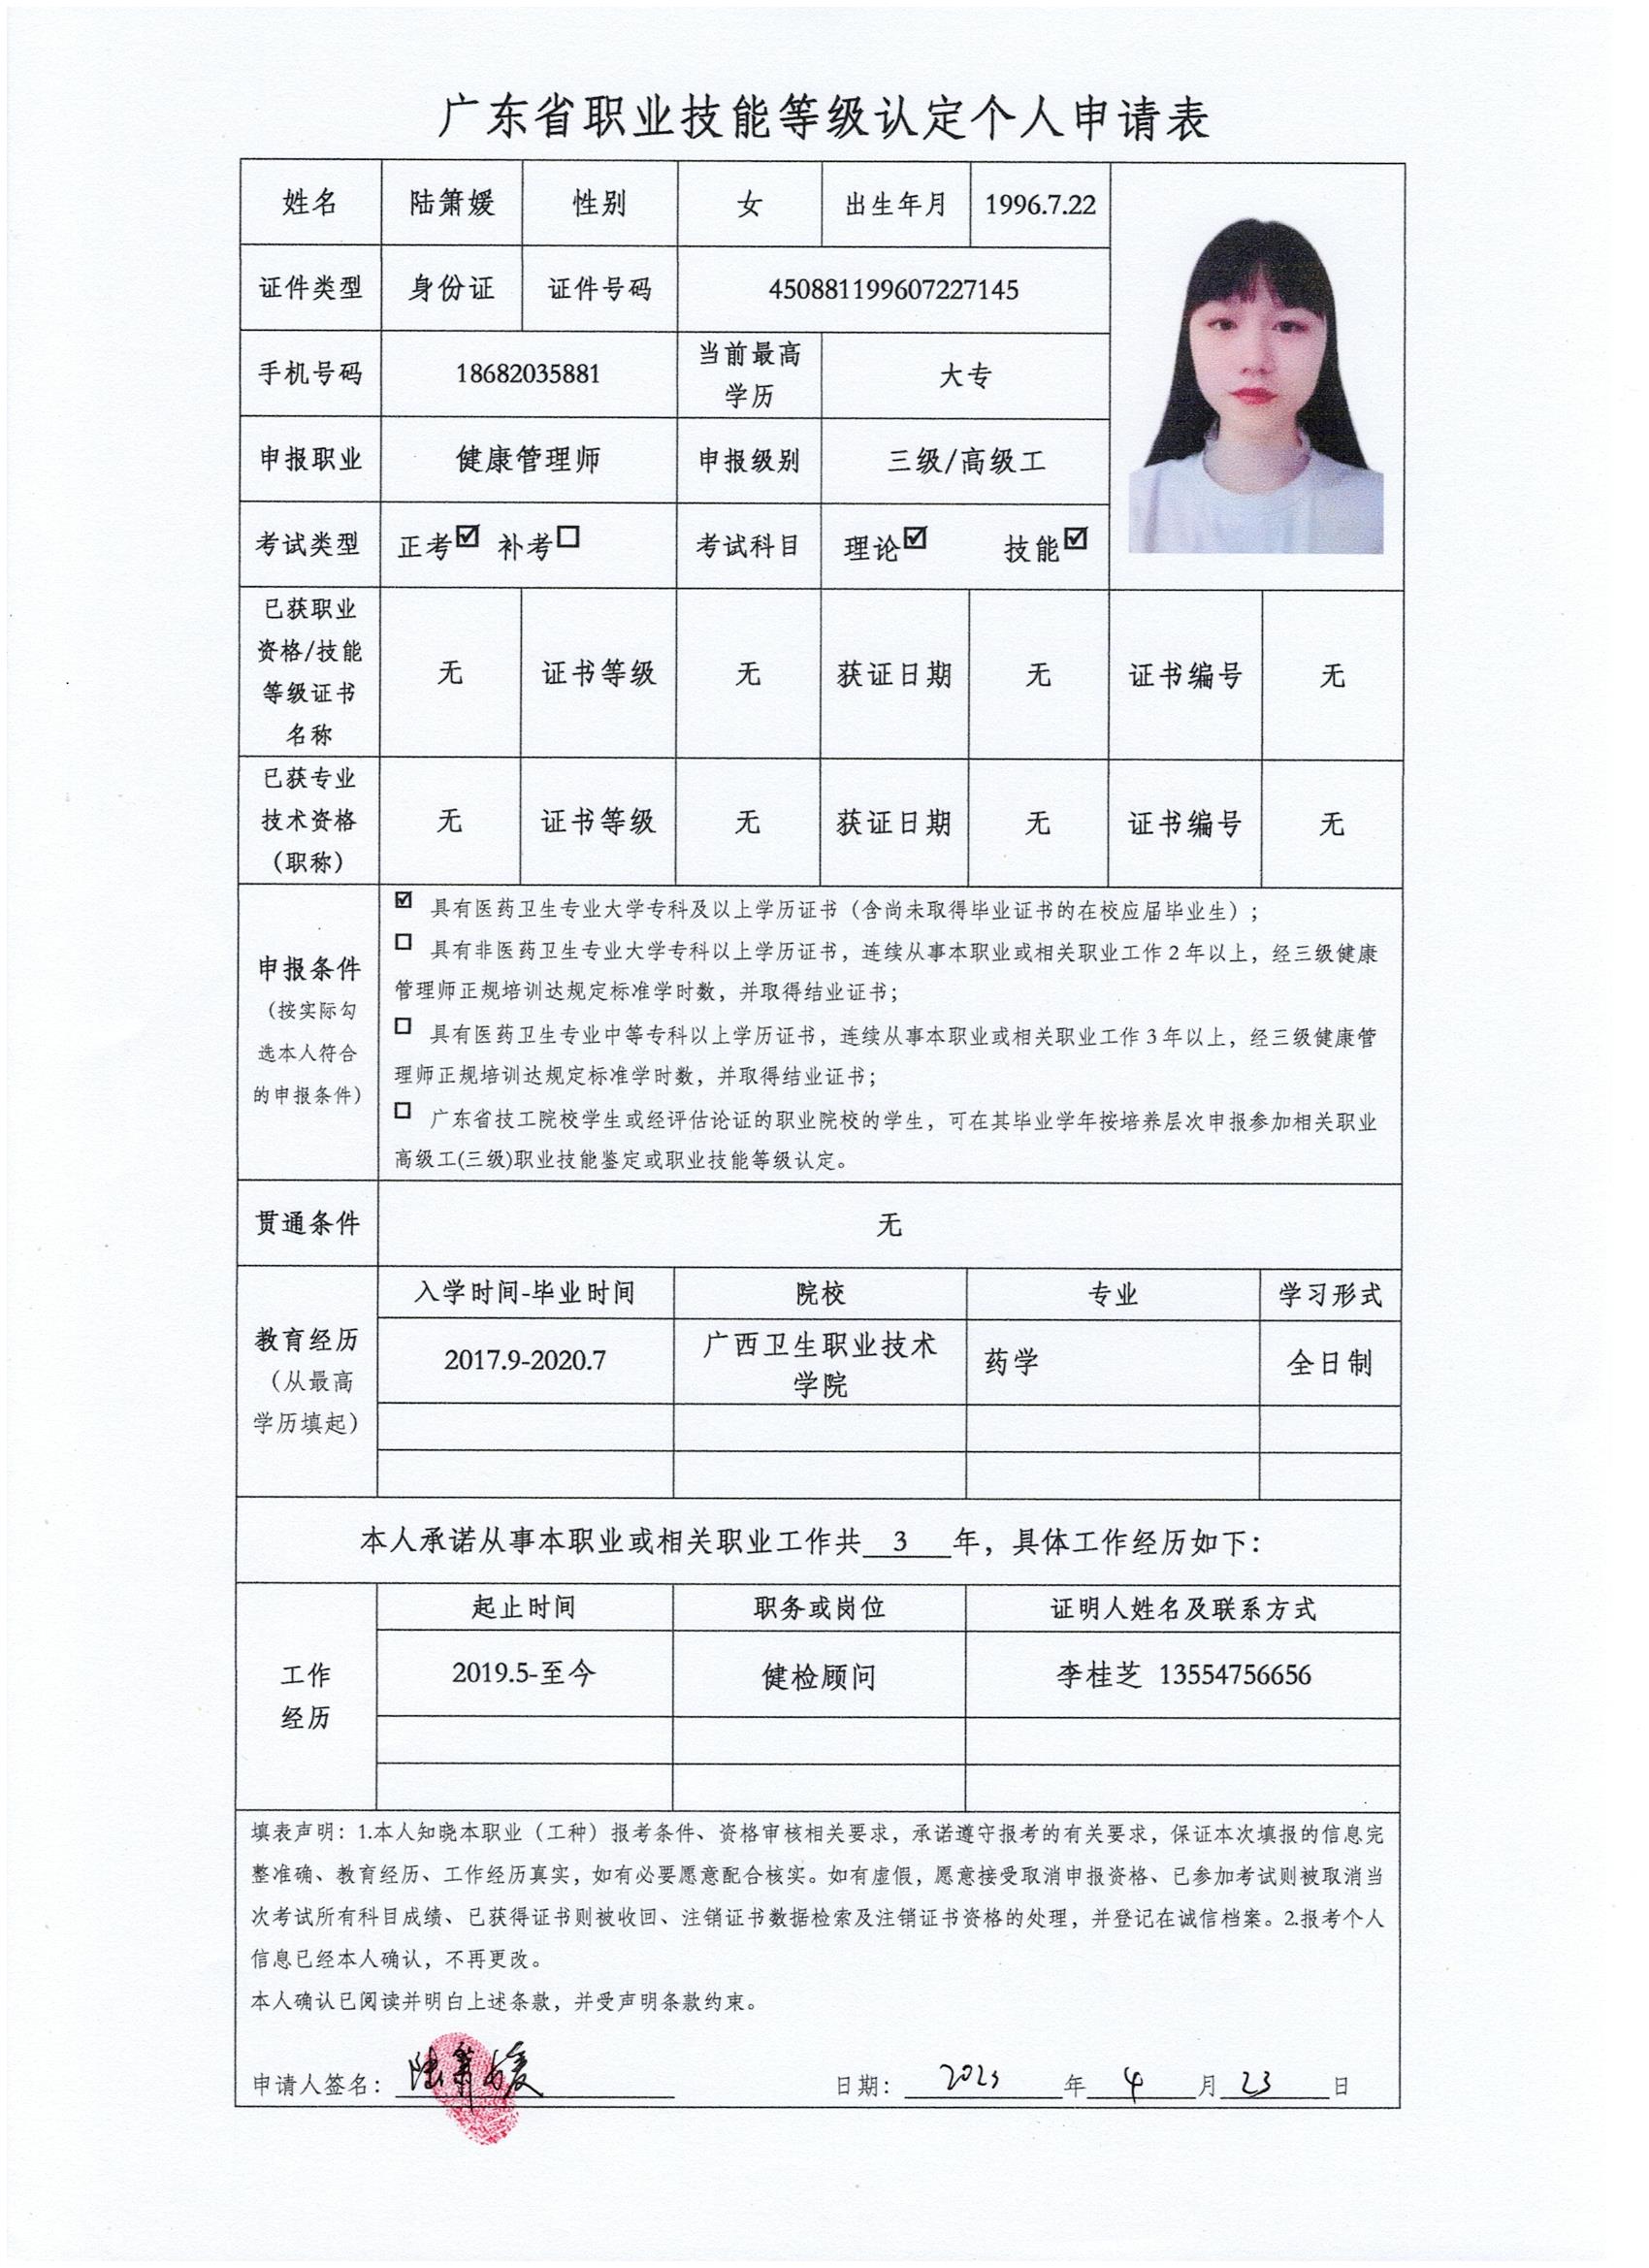 广东省职业技能等级认定个人申请表
姓名 陆箫媛 性别 女 出生年月 1996.7.22
证件类型 身份证 证件号码 450881199607227145
手机号码 18682035881 当前最高
学历 大专
申报职业 健康管理师 申报级别 三级/高级工
考试类型 正考☑ 补考☐ 考试科目 理论☑ 技能☑
已获职业
资格/技能
等级证书
名称 无 证书等级 无 获证日期 无 证书编号 无
已获专业
技术资格
（职称） 无 证书等级 无 获证日期 无 证书编号 无
申报条件
（按实际勾
选本人符合
的申报条件）
☑ 具有医药卫生专业大学专科及以上学历证书（含尚未取得毕业证书的在校应届毕业生）；
☐ 具有非医药卫生专业大学专科以上学历证书，连续从事本职业或相关职业工作 2 年以上，经三级健康
管理师正规培训达规定标准学时数，并取得结业证书；
☐ 具有医药卫生专业中等专科以上学历证书，连续从事本职业或相关职业工作 3 年以上，经三级健康管
理师正规培训达规定标准学时数，并取得结业证书；
☐ 广东省技工院校学生或经评估论证的职业院校的学生，可在其毕业学年按培养层次申报参加相关职业
高级工(三级)职业技能鉴定或职业技能等级认定。
贯通条件 无
教育经历
（从最高
学历填起）
入学时间-毕业时间 院校 专业 学习形式
2017.9-2020.7 广西卫生职业技术
学院 药学 全日制
本人承诺从事本职业或相关职业工作共 3 年，具体工作经历如下：
工作
经历
起止时间 职务或岗位 证明人姓名及联系方式
2019.5-至今 健检顾问 李桂芝 13554756656
填表声明：1.本人知晓本职业（工种）报考条件、资格审核相关要求，承诺遵守报考的有关要求，保证本次填报的信息完
整准确、教育经历、工作经历真实，如有必要愿意配合核实。如有虚假，愿意接受取消申报资格、已参加考试则被取消当
次考试所有科目成绩、已获得证书则被收回、注销证书数据检索及注销证书资格的处理，并登记在诚信档案。2.报考个人
信息已经本人确认，不再更改。
本人确认已阅读并明白上述条款，并受声明条款约束。
申请人签名： 陆箫媛 日期： 2023 年 4 月 23 日